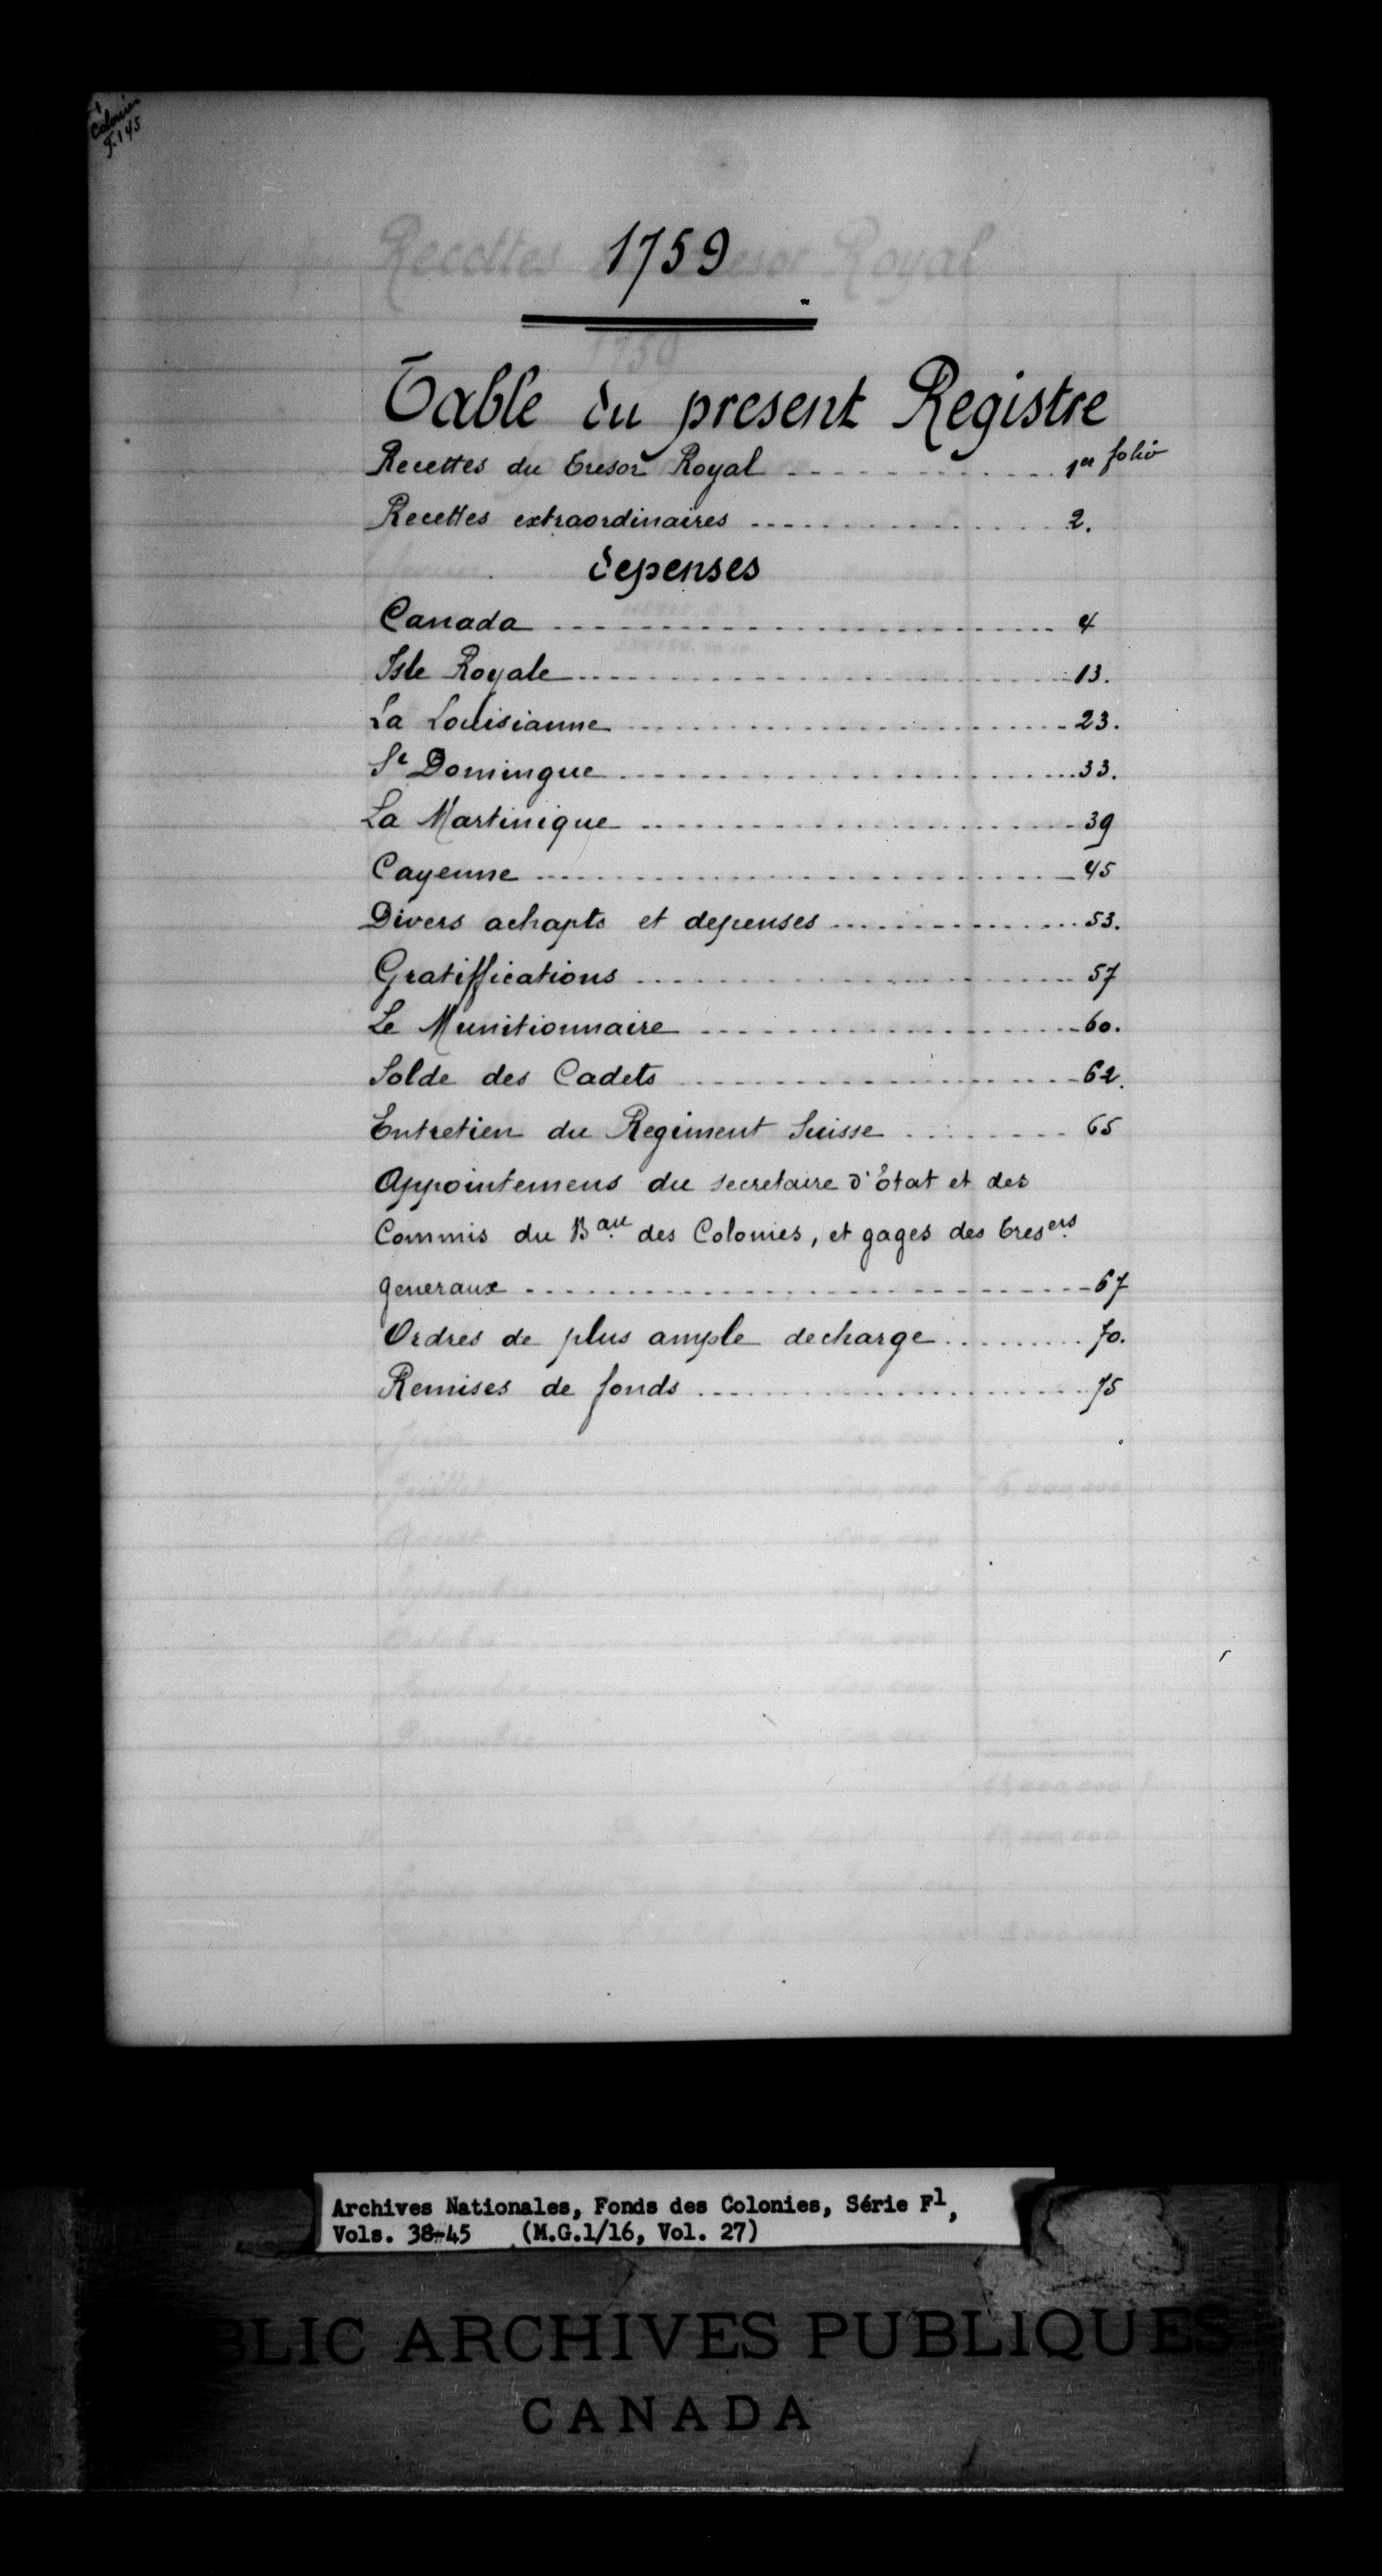 Colonies
F. 1 45
1759
Table du present Registre
Recettes du tresor Royal 1er folio
Recettes extraordinaires 2.
depenses
Canada 4
Isle Royale 13.
La Louisianne 23.
St Domingue 33.
La Martinique 39
Cayenne 45
Divers achapts et depenses 53.
Gratiffications 57
Le Munitionnaire 60.
Solde des Cadets 62.
Entretien du Regiment Suisse 65
Appointemens du secretaire d'Etat et des
Commis du Bau. des Colonies, et gages des tresers.
generaux 67
Ordres de plus ample decharge 70.
Remises de fonds 75
Archives Nationales, Fonds des Colonies, Série F1,
Vols. 38-45 (M.G.1/16, Vol. 27)
BLIC ARCHIVES PUBLIQUES
CANADA